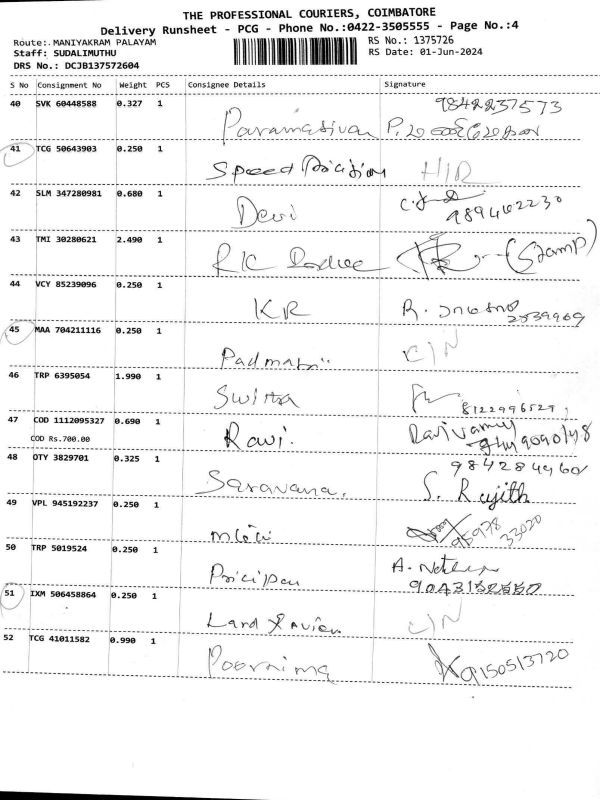 THE PROFESSIONAL COURIERS, COIMBATORE
Delivery Runsheet - PCG - Phone No.:0422-3505555 - Page No.:4
Route:. MANIYAKRAM PALAYAM
RS No.: 1375726
Staff: SUDALIMUTHU
RS Date: 01-Jun-2024
DRS No.: DCJB137572604
S No Consignment No Weight PCS Consignee Details Signature
40 SVK 60448588 0.327 1 9842237573
Paramasivan
41 TCG 50643903 0.250 1
Speed
42 SLM 347280981 0.680 1
Devi 9894102230
43 TMI 30280621 2.490 1
RK (Stamp)
44 VCY 85239096 0.250 1
KR R. 2539969
45 MAA 704211116 0.250 1
C/N
46 TRP 6395054 1.990 1
8122996529
47 COD 1112095327 0.690 1
COD Rs.700.00 Ravi.
48 OTY 3829701 0.325 1 9842849960
Saravana. S. Rajith
49 VPL 945192237 0.250 1
95978
33020
50 TRP 5019524 0.250 1
A.
51 IXM 506458864 0.250 1
Land C/N
52 TCG 41011582 0.990 1
Poornima 9150513720